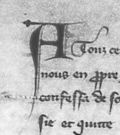 A touz ce
nous en ppre
confessa de so
sie et quitte